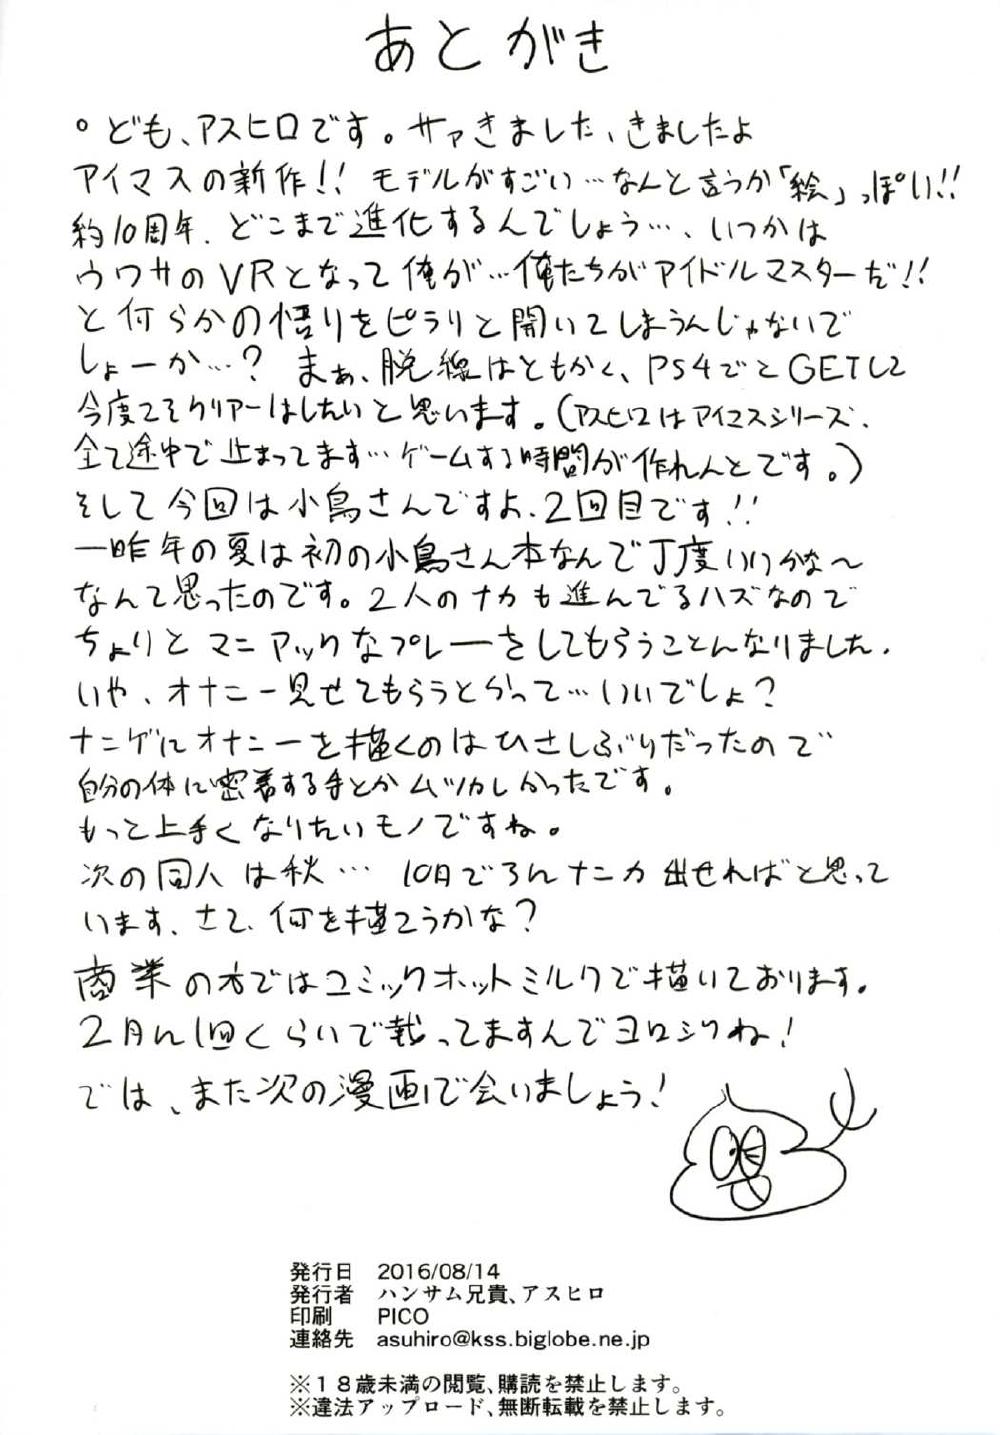 あとがき
。ども、アスヒロです。サァきました、きましたよ
アイマスの新作!! モデルがすごい…なんと言うか「絵」っぽい!!
約10周年、どこまで進化するんでしょう…、いつかは
ウワサのVRとなって俺が…俺たちがアイドルマスターだ!!
と何らかの悟りをピラリと開いてしまうんじゃないで
しょーか…? まぁ、脱線はともかく、PS4ごとGETして
今度こそクリアーはしたいと思います。(アスヒロはアイマスシリーズ、
全て途中で止まってます…ゲームする時間が作れんとです。)
そして今回は小鳥さんですよ、2回目です!!
一昨年の夏は初の小鳥さん本なんで丁度いいかな〜
なんて思ったのです。2人のナカも進んでるハズなので
ちょりとマニアックなプレーをしてもらうことんなりました。
いや、オナニー見せてもらうとかって…いいでしょ?
ナニゲにオナニーを描くのはひさしぶりだったので
自分の体に密着する手とかムツカしかったです。
もっと上手くなりたいモノですね。
次の同人は秋… 10月ごろんナニカ出せればと思って
います、さて、何を描こうかな?
商業の方ではコミックホットミルクで描いております。
2月ん1回くらいで載ってますんでヨロシクね!
では、また次の漫画で会いましょう!
発行日 2016/08/14
発行者 ハンサム兄貴、アスヒロ
印刷 PICO
連絡先 asuhiro@kss.biglobe.ne.jp
※18歳未満の閲覧、購読を禁止します。
※違法アップロード、無断転載を禁止します。